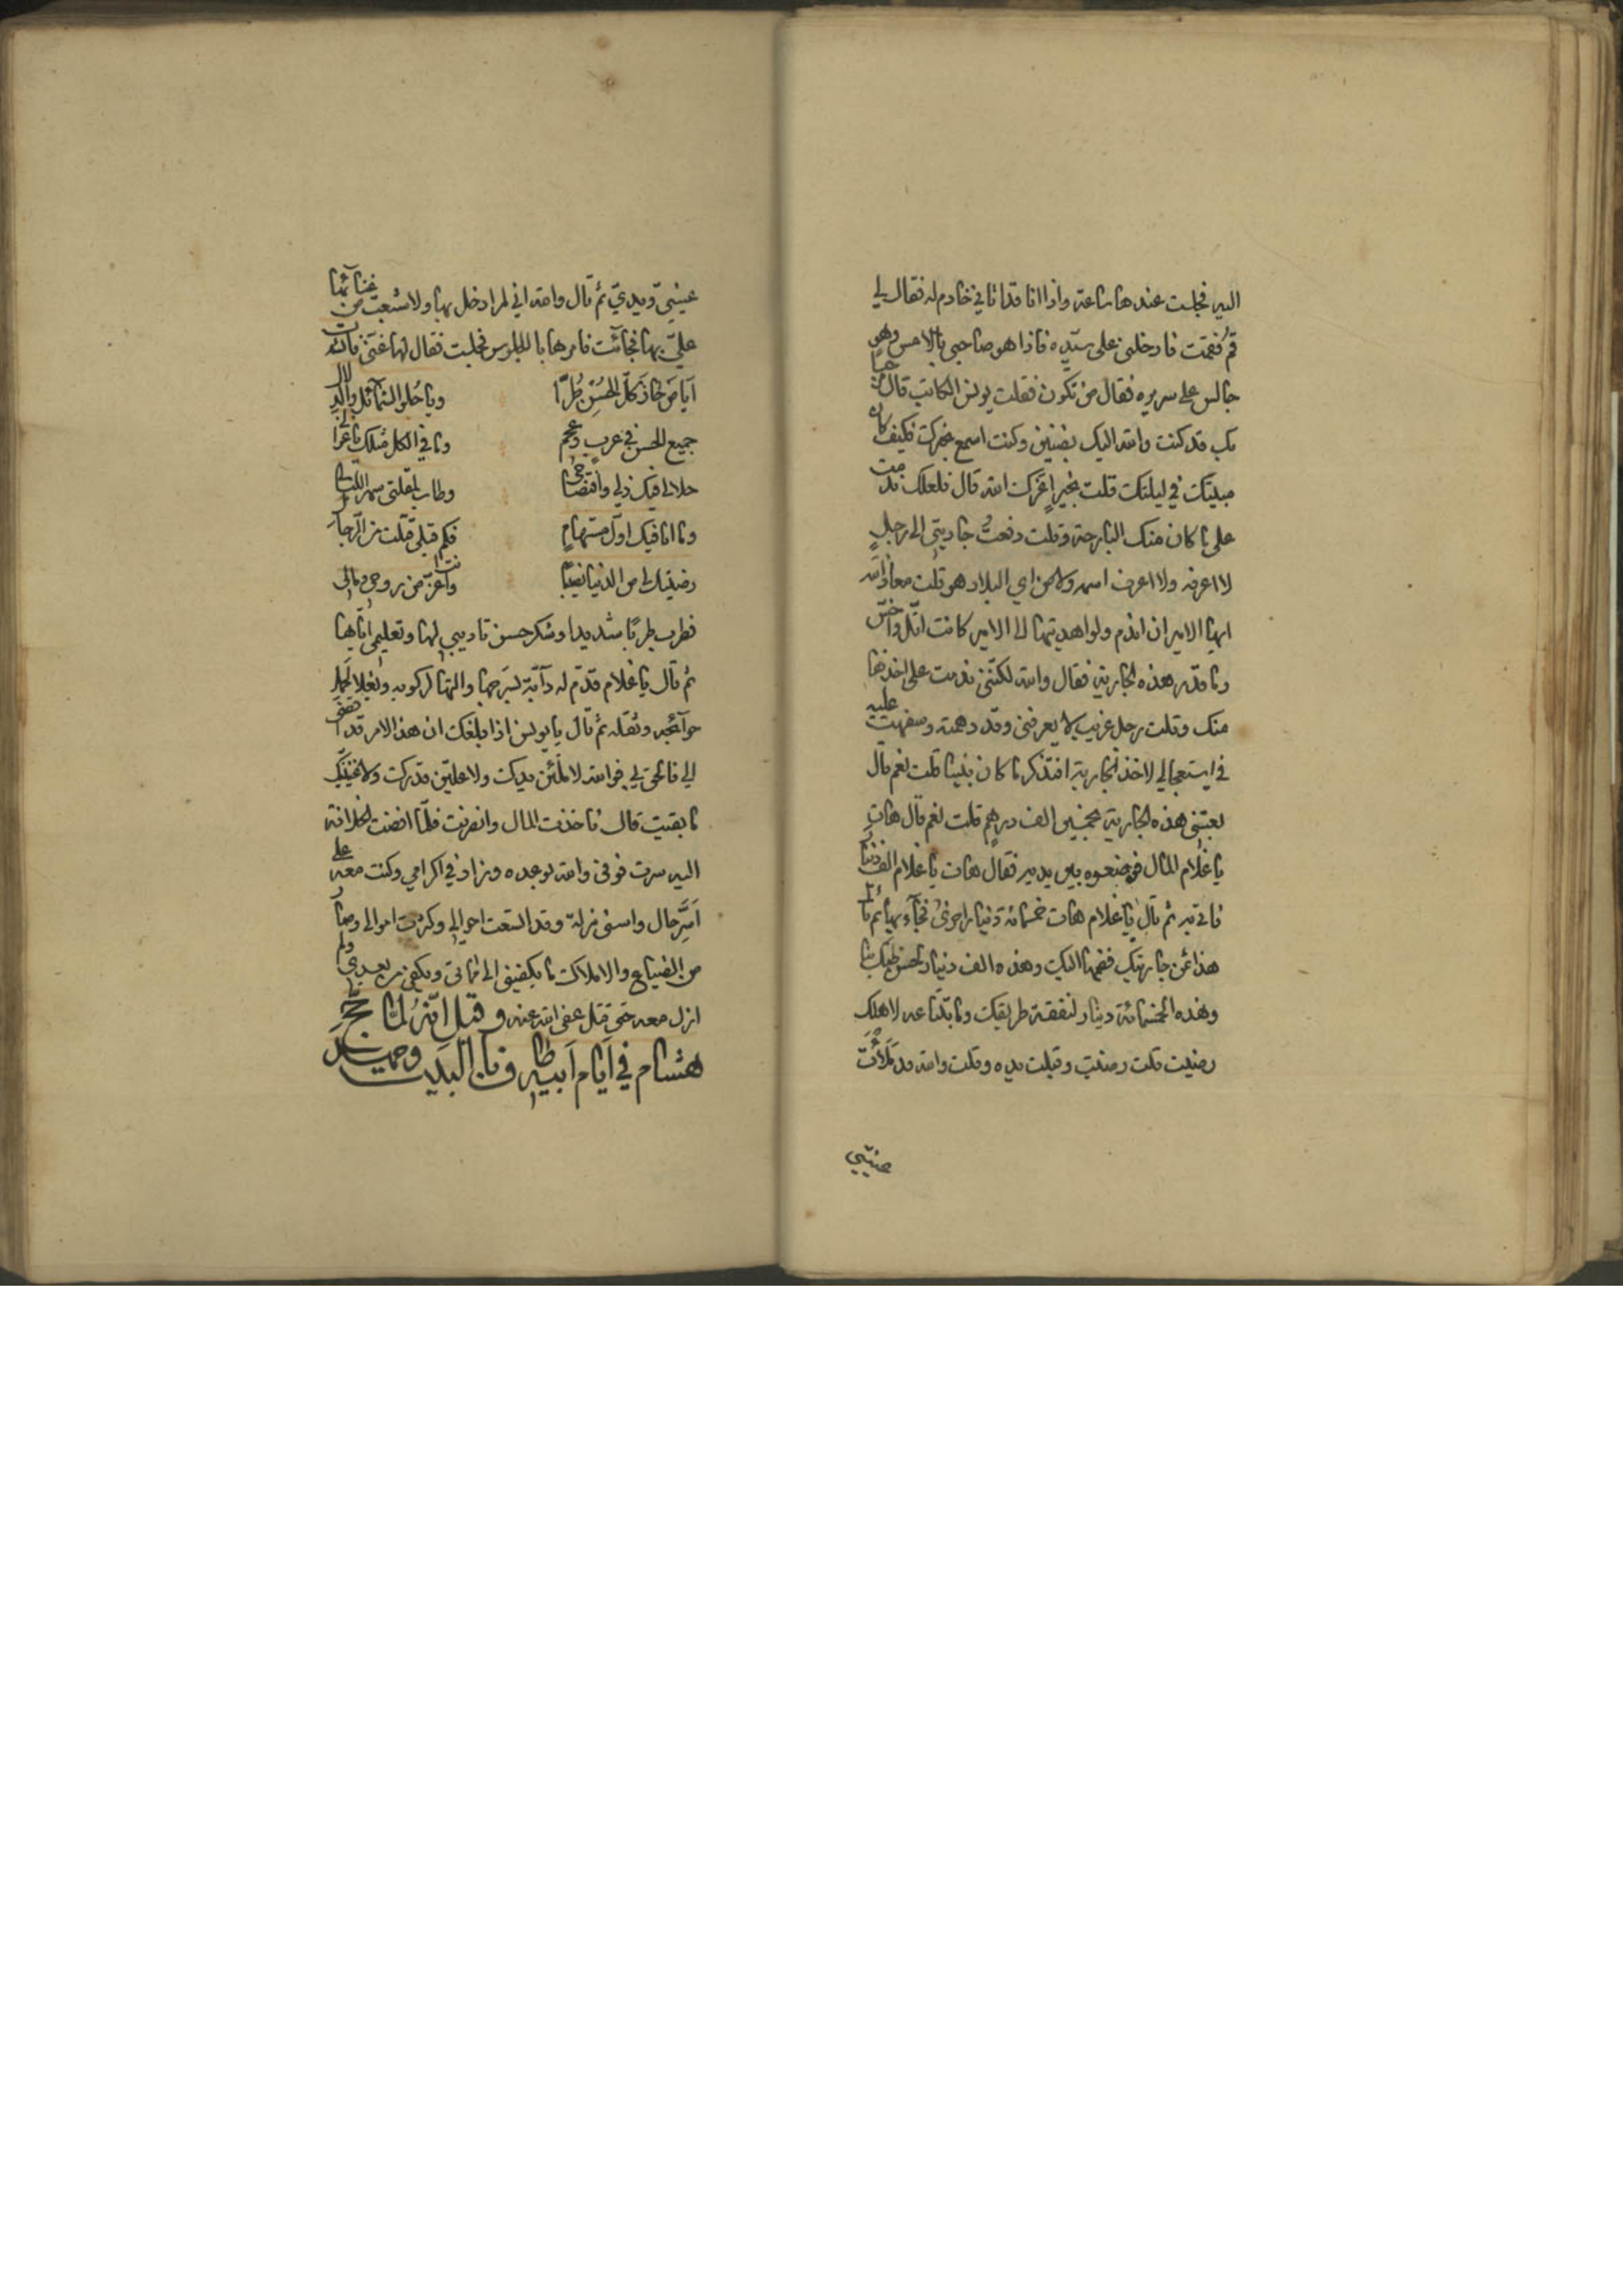 اليه فجلست عندها ساعة واذا انا قد اتاني خادم له فقال لي
قم فقمت فادخلني على سيده فاذا هو صاحبي بالامس وهو
جالس على سريره فقال من تكون فقلت يونس الكاتب قال مرحبا
بك قد كنت والله اليك بضنين وكنت اسمع بخبرك فكيف كان
مبيتك في ليلتك قلت بخير اعزك الله قال فلعلك ندمت
على ما كان منك البارحة وقلت دفعتُ جاريتي الى رجلٍ
لا اعرفه ولا اعرف اسمه ولا من اي البلاد هو قلت معاذ الله
ايها الامير ان اندم ولو اهديتها الى الامير كانت اقل واخس
وما قدر هذه الجارية فقال والله لكنني ندمت على اخذها
منك وقلت رجل غريب لا يعرفني وقد دهمته وسفهت عليه
في استعجالي لاخذ الجارية افتذكر ما كان بيننا قلت نعم قال
بعتني هذه الجارية بخمسين الف درهم قلت نعم قال هات
يا غلام المال فوضعوه بين يديه فقال هات يا غلام الف دينار
فاتي به ثم قال يا غلام هات خمسمائة دينارا اخرى فجآء بها ثم قال
هذا ثمن جاريتك فضمها اليك وهذه الف دينار لحسن ظنك بنا
وهذه الخمسمائة دينار لنفقة طريقك وما تبتاعه لاهلك
رضيت قلت رضيت وقبلت يده وقلت والله قد ملأت
عيني
عيني ويدي ثم قال والله اني لم ادخل بها ولا شبعت من غنائها
علي بها فجائت فامرها بالجلوس فجلست فقال لها غني فانشدت
ايا من حاز كل الحسن طُرّا
ويا حلو الشمائل والدلال
جميع الحسن في عرب وعجم
وما في الكل مثلك يا غزالي
حلالي فيك ذلي وافتضاحي
وطاب لمقلتي سهر الليالي
وما انا فيك اول مستهامٍ
فكم قبلي قتلت من الرجال
رضيتك لي من الدنيا نصيبا
وانت اعز من روحي ومالي
فطرب طربًا شديدا وشكر حسن تاديبي لها وتعليمي اياها
ثم قال يا غلام قدّم له دآبة بسرجها والتها لركوبه وبغلا لحمل
حوآئجه وثقله ثم قال يا يونس اذا بلغك ان هذا الامر قد افضى
الي فالحق بي فوالله لاملئن يديك ولاعلين قدرك ولاغنينك
ما بقيت قال فاخذت المال وانصرفت فلما افضت الخلافة
اليه سرت فوفى والله بوعده وزاد في اكرامي وكنت معه على
اسرِّ حال واسنى منزلة وقد اتسعت احوالي وكثرت اموالي وصار لي
من الضياع والاملاك ما يكفيني الى مماتي ويكفي من بعدي ولم
ازل معه حتى قتل عفى الله عنه وقيل انه لما حجّ
هشام في ايام ابيه طاف بالبيت وجهد